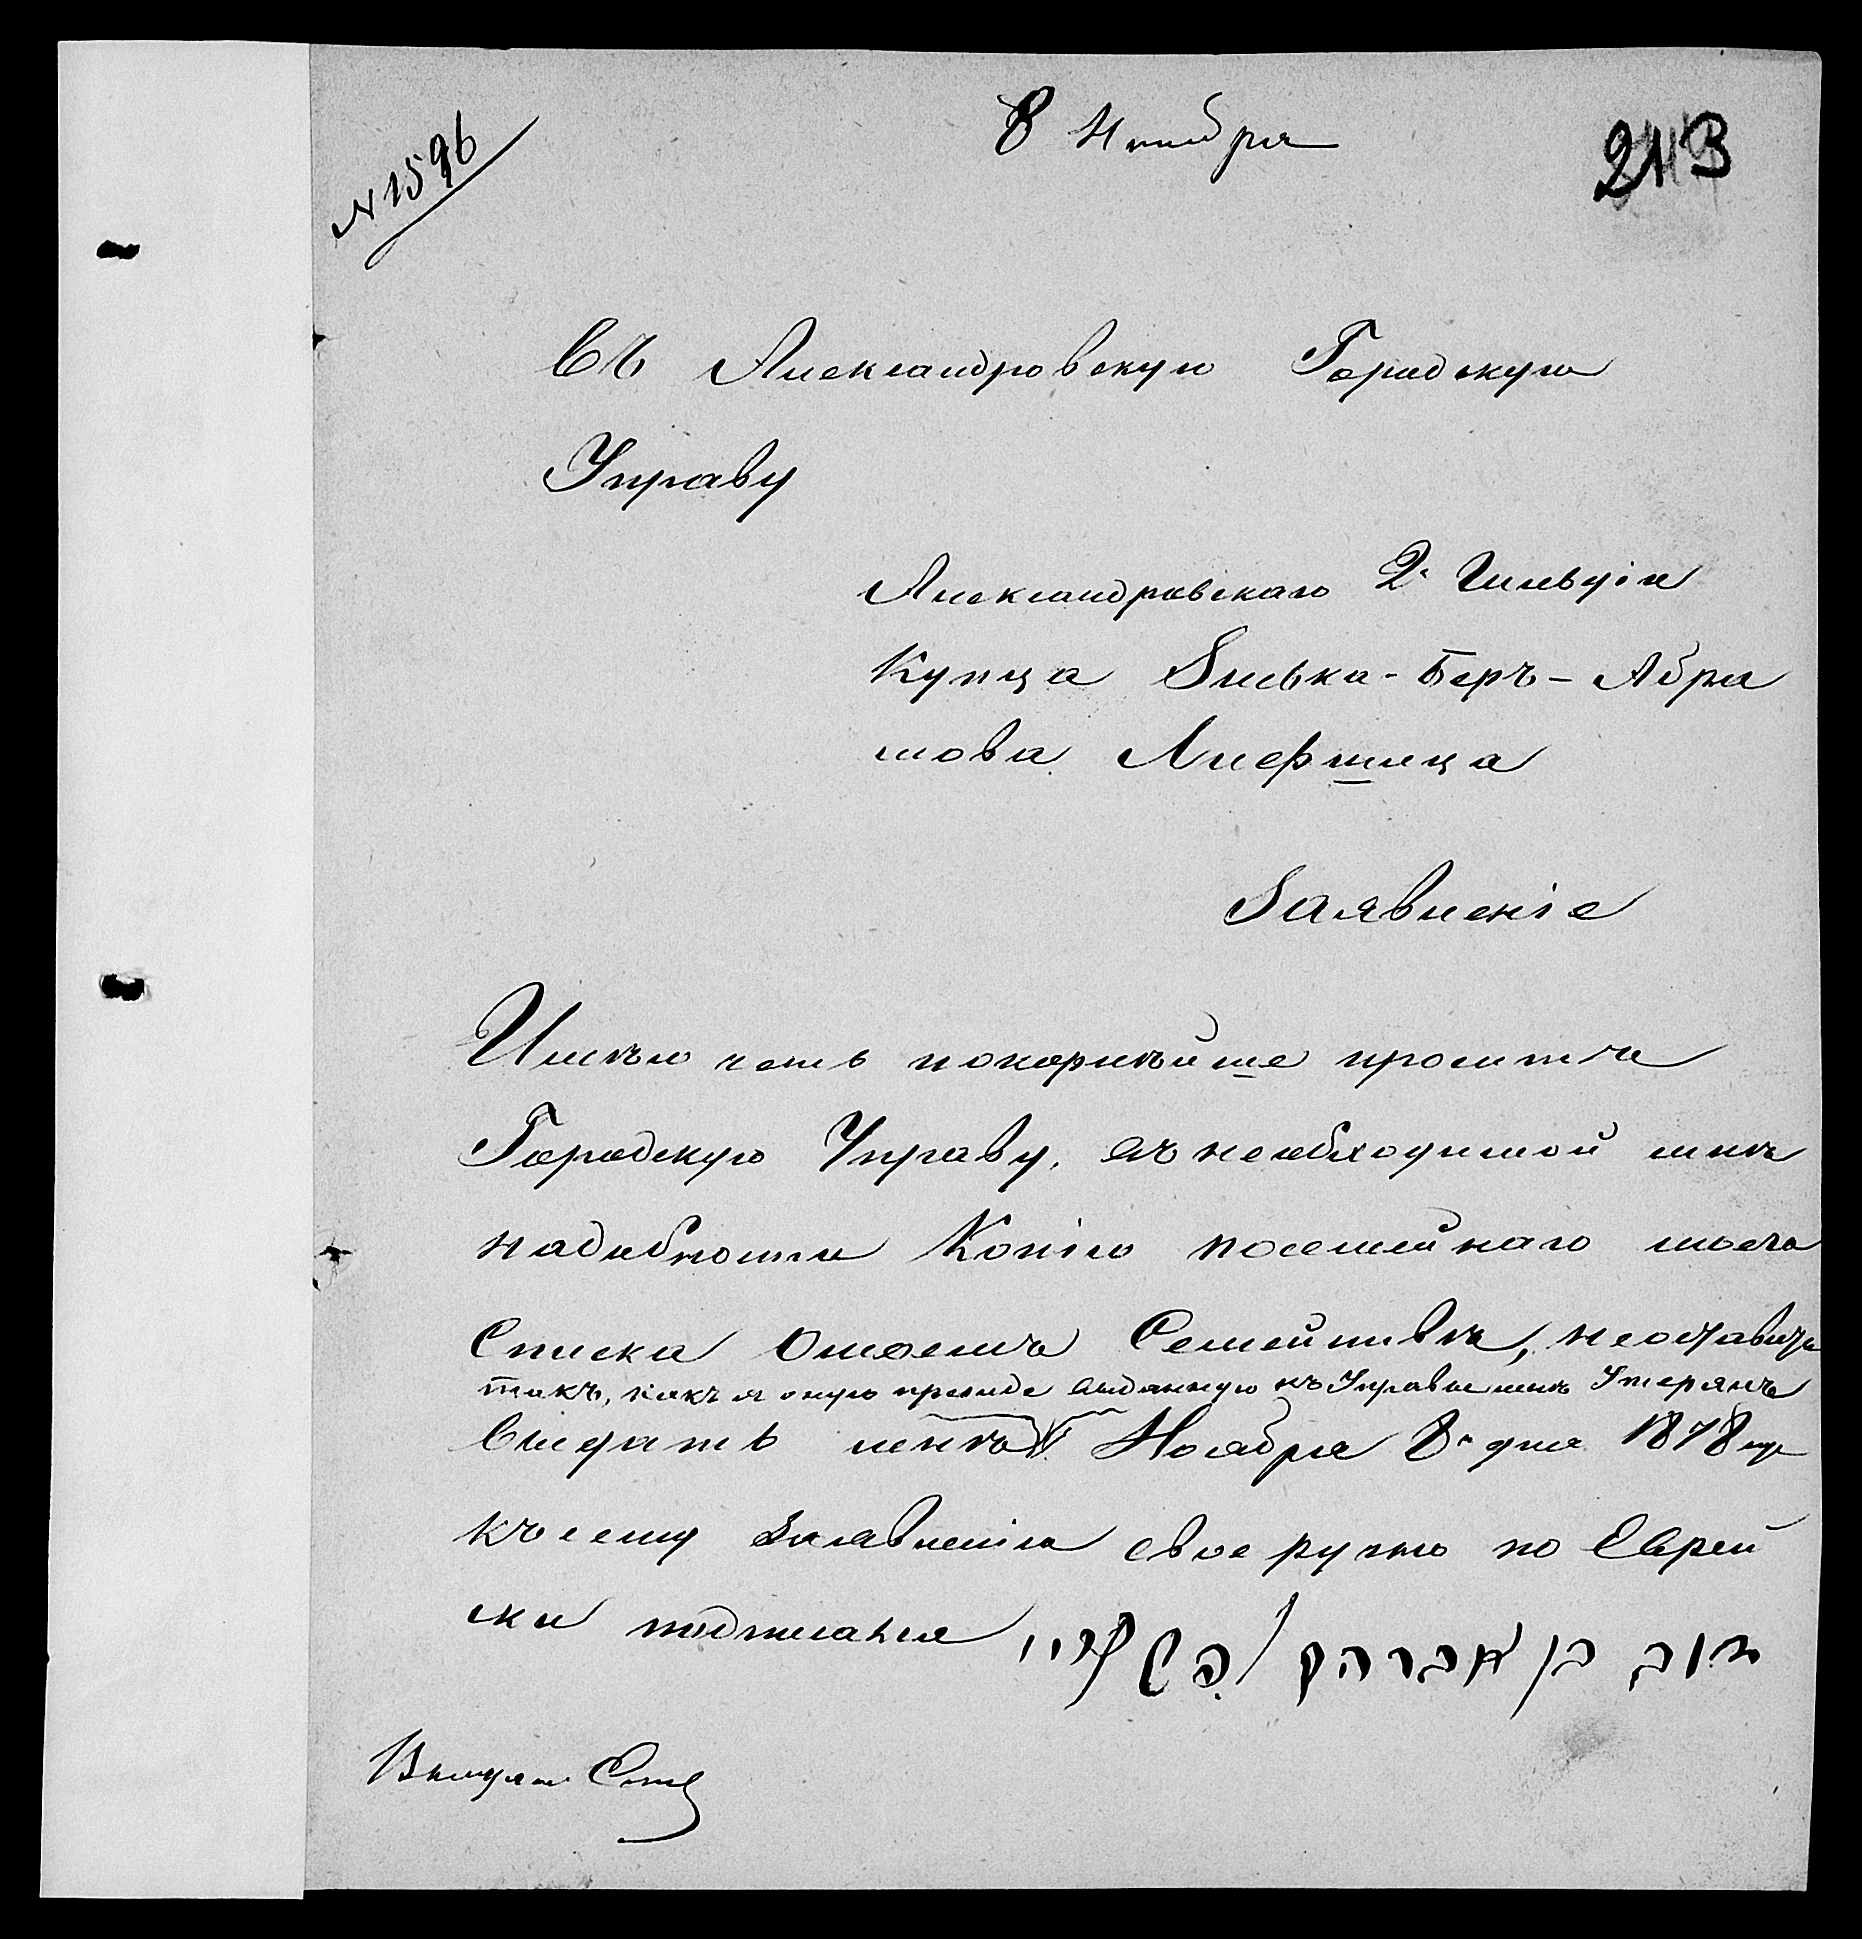 № 1596
8 Ноября
213
Въ Александровскую Городскую
Управу
Александровскаго 2й Гильдіи
Купца Зиська-Беръ-Абра
мова Лифшица
Заявленіе
Имѣю честь покорнѣйше просить
Городскую Управу, въ необходимой мнѣ
надобности Копію посемейнаго моего
Списка Омоемъ Семействѣ, неоставить
такъ, какъ я оную прежде выданную изъ Управы мнѣ Утерялъ
Выдать мнѣ Ноября 8го дня 1878 года
Къ сему Заявленію свое ручно по Еврей
ски подписался דוב בן אברהם